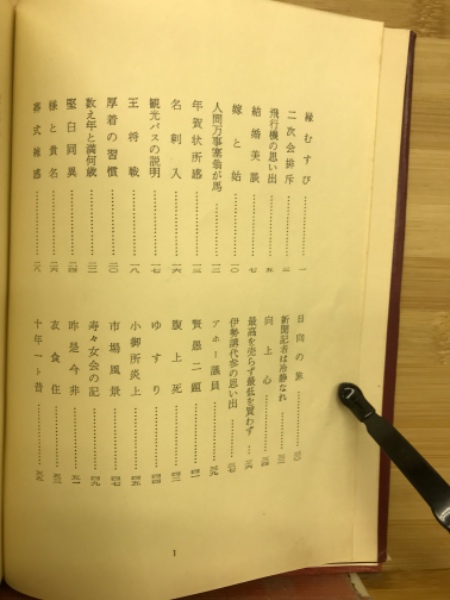 縁むすび……………一
二次会排斥……………三
飛行機の思い出……………五
結婚美談……………七
嫁と姑……………一〇
人間万事塞翁が馬……………一二
年賀状所感……………一三
名刺入……………一六
観光バスの説明……………一七
王将戦……………一八
厚着の習慣……………二〇
数え年と満何歳……………二二
堅白同異……………二四
様と貴名……………二六
葬式雑感……………二八
日向の旅……………三〇
新聞記者は冷静なれ……………三二
向上心……………三四
最高を売らず最低を買わず……三六
伊勢講代参の思い出……………三七
アホー議員……………三九
賢愚二題……………四一
腹上死……………四三
ゆすり……………四四
小御所炎上……………四五
市場風景……………四七
寿々女会の記……………四九
昨是今非……………五一
衣食住……………五三
十年一ト昔……………五五
1